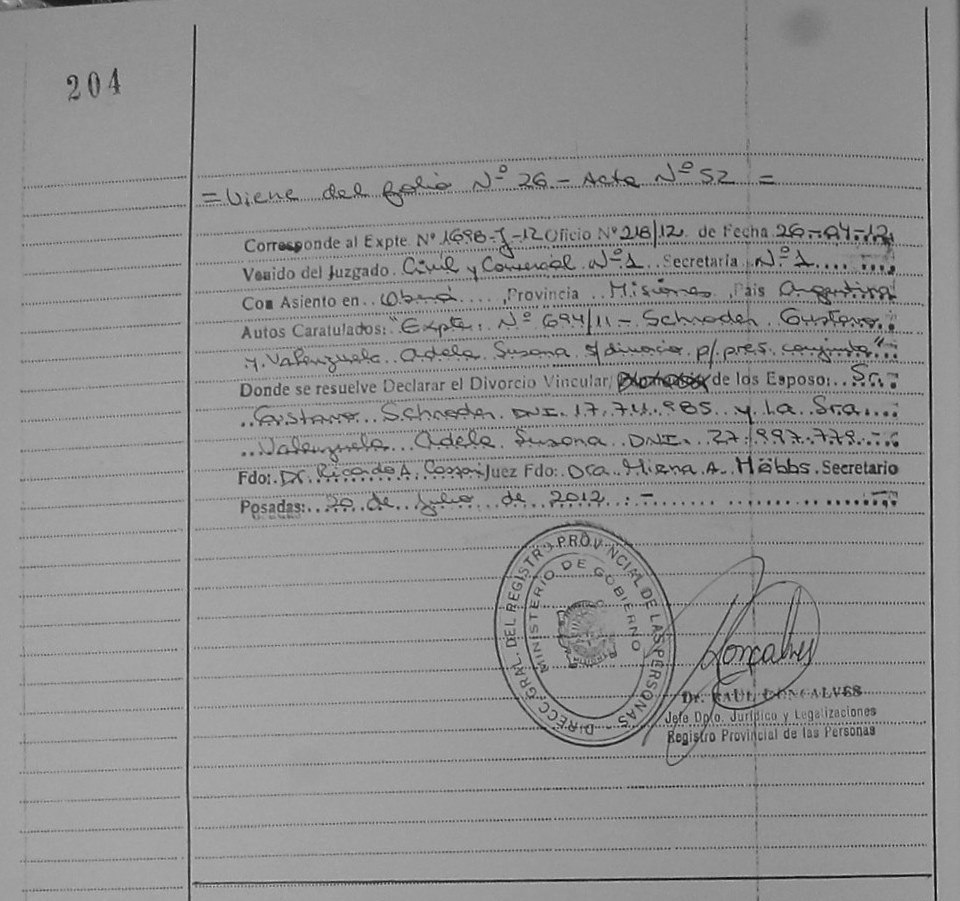 204
= Viene del folio Nº 26 - Acta Nº 52 =
Corresponde al Expte. Nº 1698-J-12 Oficio Nº 218/12 de Fecha 26-04-12
Venido del Juzgado Civil y Comercial Nº 1 Secretaría Nº 1
Con Asiento en Oberá, Provincia Misiones, País Argentina
Autos Caratulados: "Expte. Nº 694/11 - Schroder Gustavo
y Valenzuela Adela Susana s/divorcio p/ pres. conjunta"
Donde se resuelve Declarar el Divorcio Vincular/ de los Esposo: Sr.
Gustavo Schroder DNI. 17.711.985 y La Sra
Valenzuela Adela Susana DNI. 27.997.779
Fdo: Dr. Ricardo A. Juez Fdo: Dra. A. Secretario
Posadas: 20 de Julio de 2012 : -
DIRECC. GRAL. DEL REGISTRO PROVINCIAL DE LAS PERSONAS
MINISTERIO DE GOBIERNO
Dr. RAUL GONCALVES
Jefe Dpto. Jurídico y Legalizaciones
Registro Provincial de las Personas